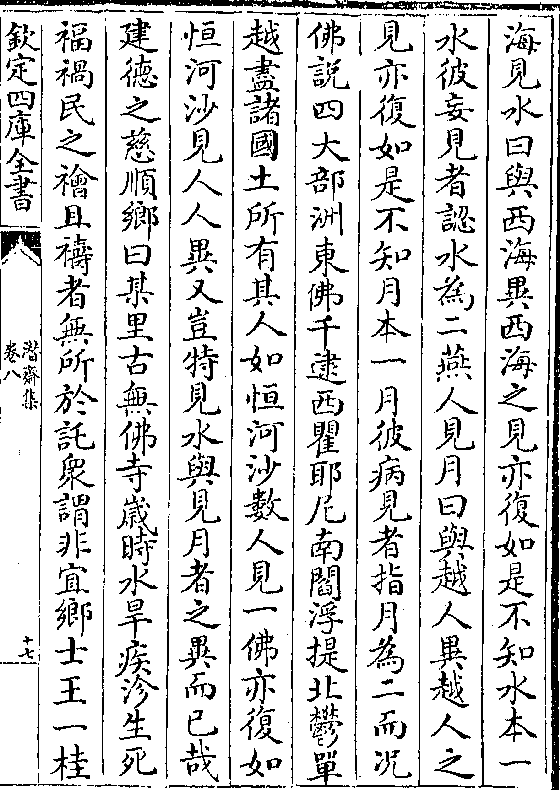 海見水曰與西海異西海之見亦復如是不知水本一
水彼妄見者認水為二燕人見月曰與越人異越人之
見亦復如是不知月本一月彼病見者指月為二而况
佛説四大部洲東佛千逮西瞿耶尼南閻浮提北鬱單
越盡諸國土所有其人如恒河沙數人見一佛亦復如
恒河沙見人人異又豈特見水與見月者之異而已哉
建德之慈順鄉曰某里古無佛寺歲時水旱疾沴生死
福禍民之禬且禱者無所於託衆謂非宜鄉士王一桂
欽定四庫全書
潛齋集
卷八
十七